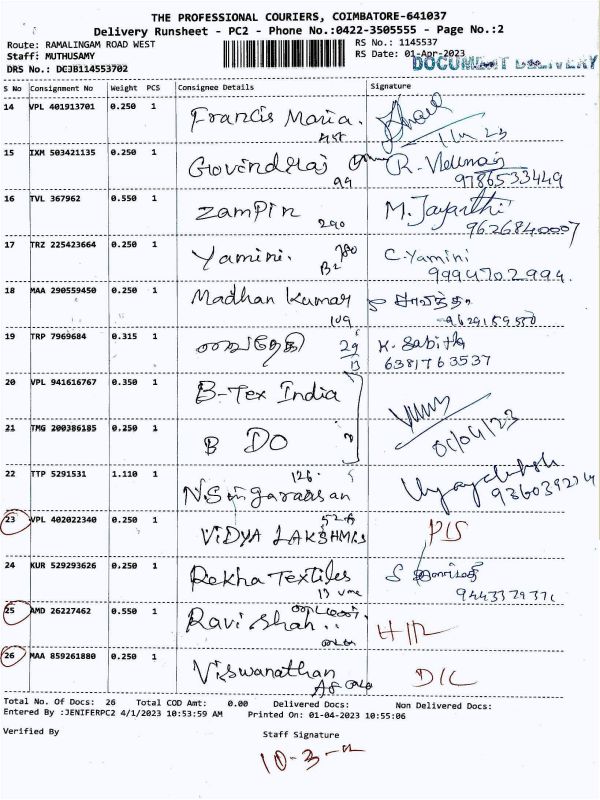 THE PROFESSIONAL COURIERS, COIMBATORE-641037
Delivery Runsheet - PC2 - Phone No.:0422-3505555 - Page No.:2
Route: RAMALINGAM ROAD WEST
RS No.: 1145537
Staff: MUTHUSAMY
RS Date: 01-Apr-2023
DOCUMENT DELIVERY
DRS No.: DCJB114553702
S No Consignment No Weight PCS Consignee Details Signature
14 VPL 401913701 0.250 1 Francis Maria.
15 IXM 503421135 0.250 1 Govindraj
99
9786533449
16 TVL 367962 0.550 1 Zampin M. Jayanthi
290 9626840007
17 TRZ 225423664 0.250 1 Yamini. C. Yamini
B2 9994702994.
18 MAA 290559450 0.250 1 Madhan Kumar
109
19 TRP 7969684 0.315 1 வைதேகி 29 K. Sabitha
13 6381763537
20 VPL 941616767 0.350 1 B-Tex India
21 TMG 200386185 0.250 1 B DO 01/04/23
126.
22 TTP 5291531 1.110 1 N.Singaravasan
52A
23 VPL 402022340 0.250 1 VIDYA LAKSHMI
24 KUR 529293626 0.250 1 Rekha Textiles
25 AMD 26227462 0.550 1 Ravi Shah..
26 MAA 859261880 0.250 1 Viswanathan D/C
Total No. Of Docs: 26 Total COD Amt: 0.00 Delivered Docs: Non Delivered Docs:
Entered By :JENIFERPC2 4/1/2023 10:53:59 AM Printed On: 01-04-2023 10:55:06
Verified By Staff Signature
10-3-